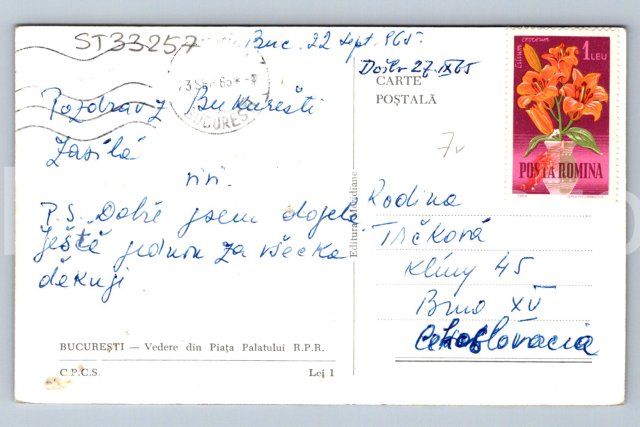 ST33257
Buc. 22 Sept. 965.
Došlo 27.IX 65
CARTE
POȘTALĂ
BUCUREȘTI
Lilium croceum
1 LEU
POSTA ROMINA
7v
Pozdrav z Bukurešti
zasílá
P.S. Dobře jsem dojela
Ještě jednou za všecko
děkuji
Editura Meridiane
Rodina
Trčková
Klíny 45
Brno XV
Cekoslovacia
BUCUREȘTI — Vedere din Piața Palatului R.P.R.
C.P.C.S.
Lei 1